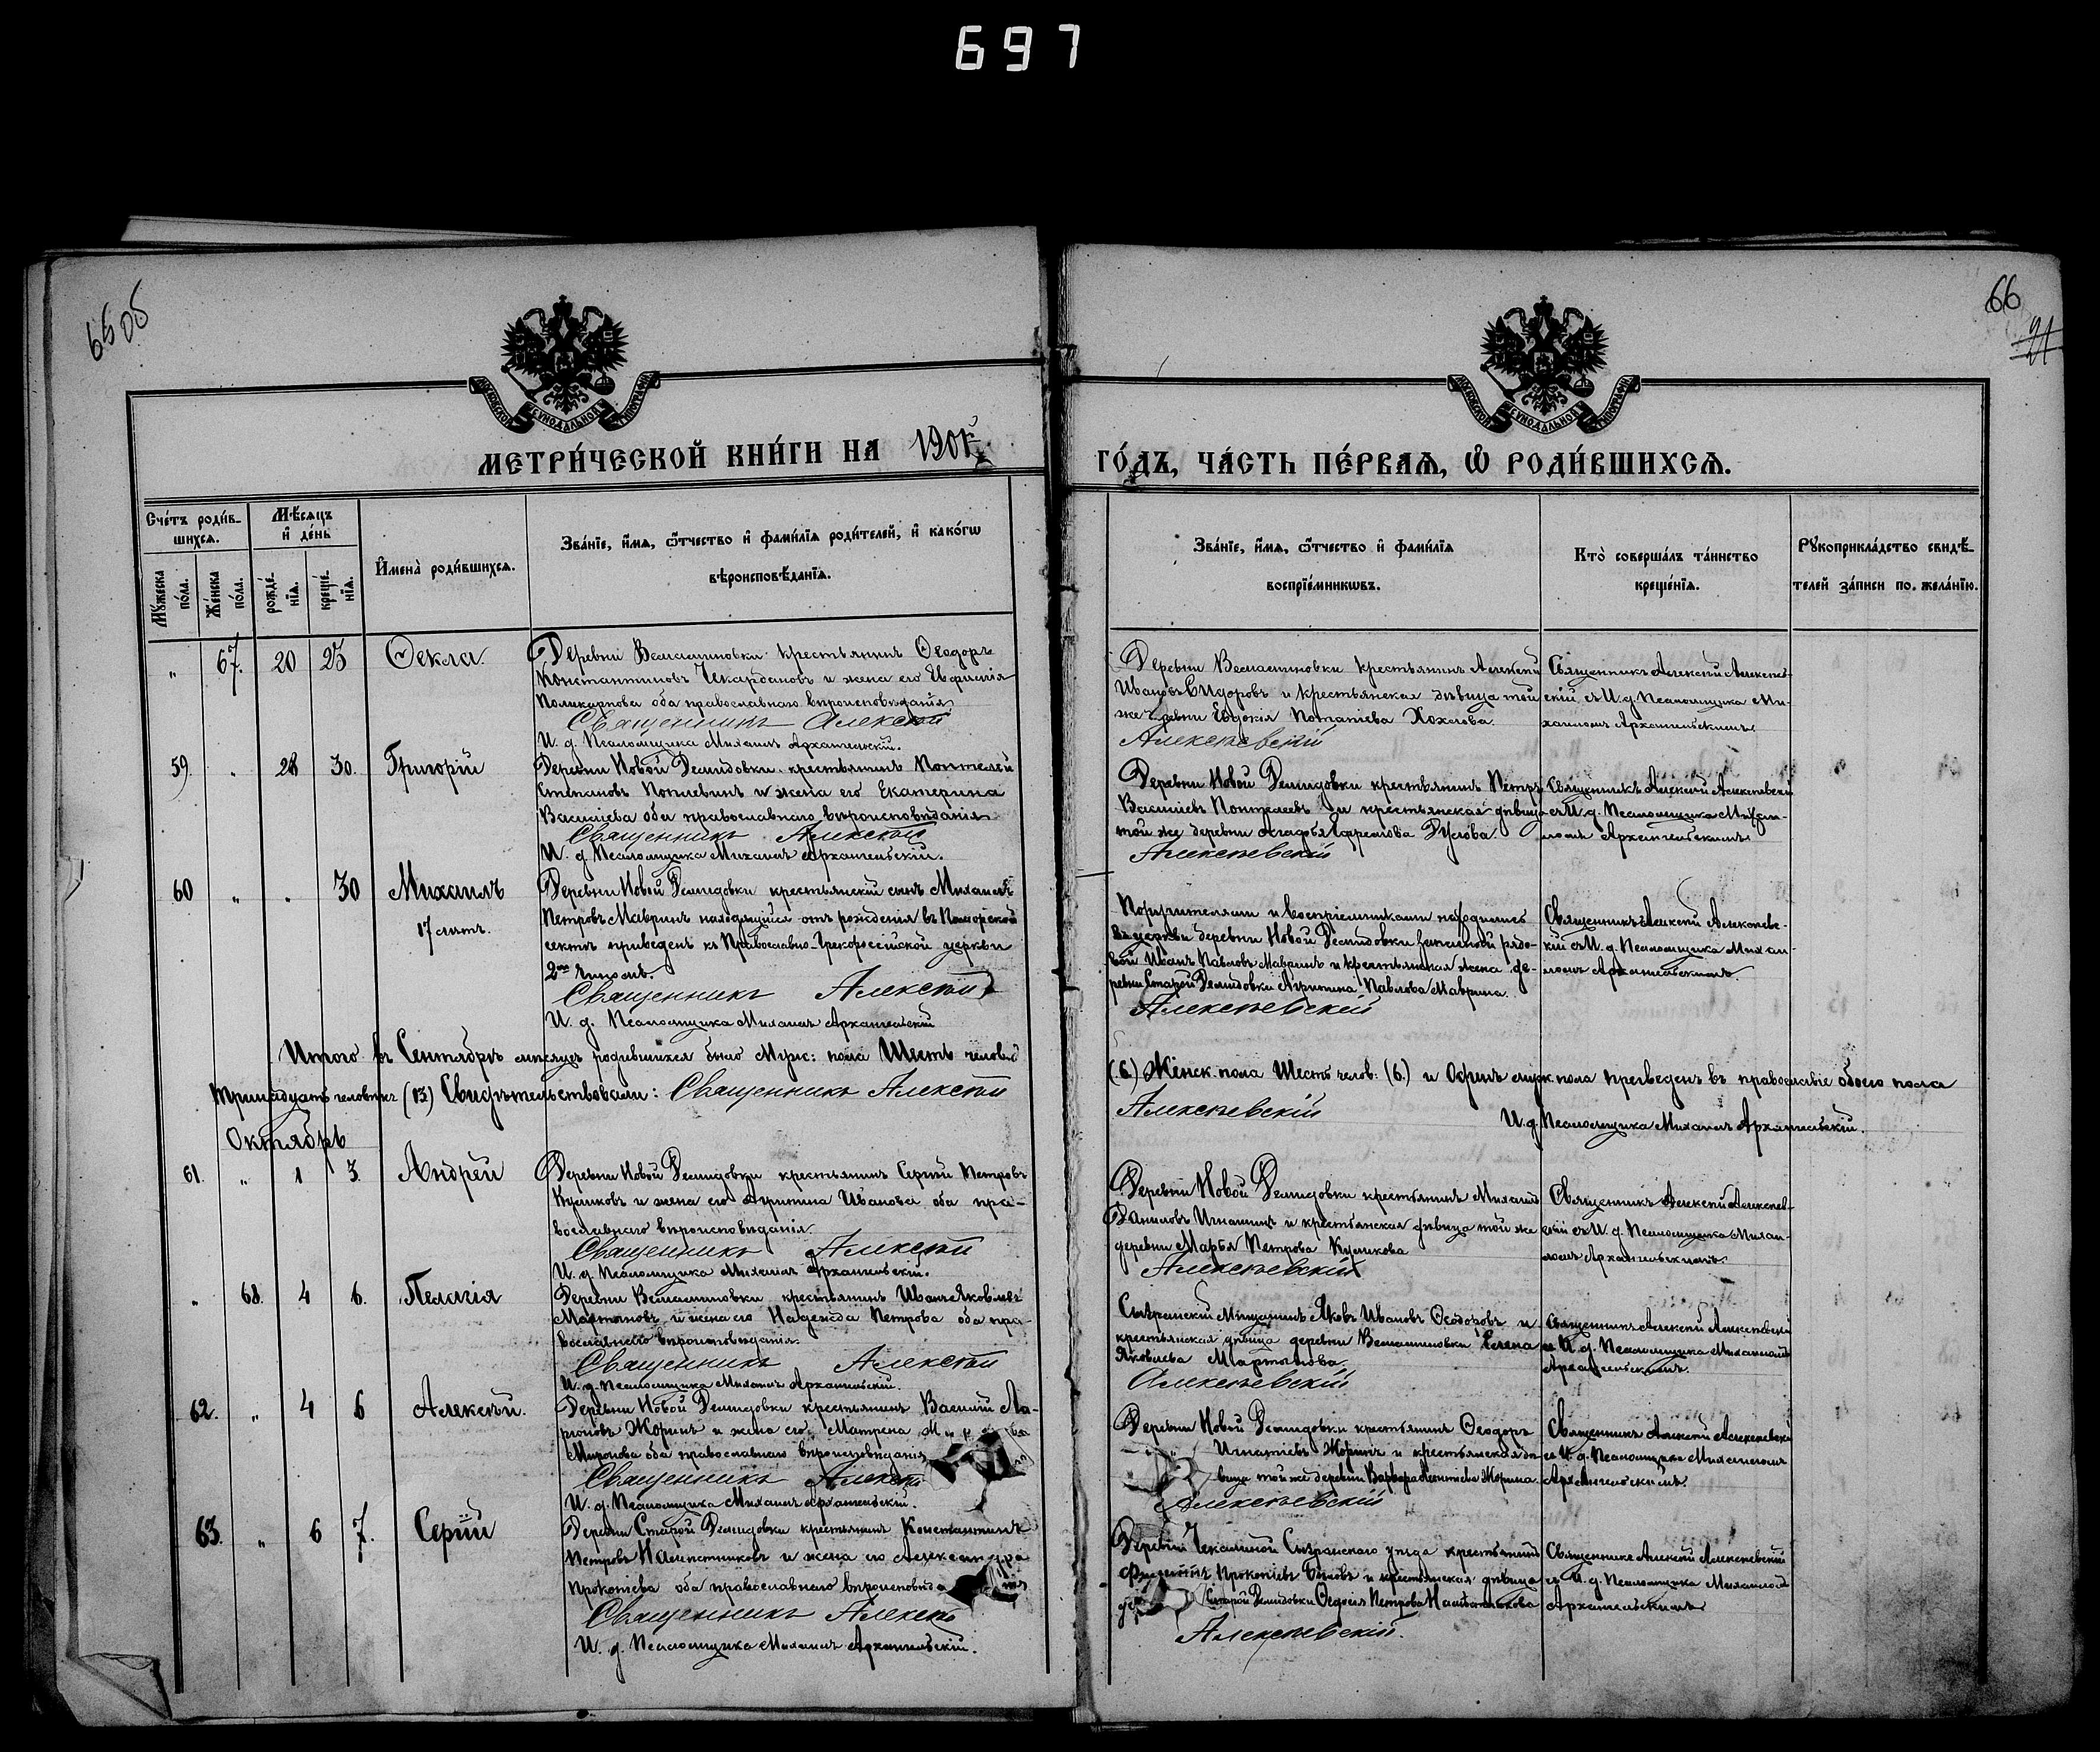 697
65об
66
21
МОСКОВСКОЙ СѴНОДАЛЬНОЙ ТИПОГРАФІИ
МОСКОВСКОЙ СѴНОДАЛЬНОЙ ТИПОГРАФІИ
МЕТРИ́ЧЕСКОЙ КНИ́ГИ НА 1901
ГО́ДЪ, ЧА́СТЬ ПЕ́РВАѦ, Ѡ РОДИ́ВШИХСѦ.
Сче́тъ роди́в-
шихсѧ.
Мѣ́сѧцъ
и҆ де́нь
Мꙋ́жеска
по́ла.
Же́нска
по́ла.
рожде́-
нїѧ.
креще́-
нїѧ.
И҆мена̀ роди́вшихсѧ.
Зва́нїе, и҆́мѧ, ѻ҆́тчество и҆ фами́лїѧ роди́телей, и҆ како́гѡ
вѣроисповѣ́данїѧ.
Зва́нїе, и҆́мѧ, ѻ҆́тчество и҆ фами́лїѧ
воспрїе́мникѡвъ.
Кто̀ соверша́лъ та́инство
креще́нїѧ.
Рꙋкоприкла́дство свидѣ́-
телей за́писи по желáнїю.
" 67. 20 23 Ѳекла.
Деревни Вельяминовки крестьянинъ Ѳеодоръ
Константиновъ Чекардановъ и жена его Евфимія
Поликарпова оба православнаго вѣроисповѣданія
Священникъ Алексѣй
И. д. Псаломщика Михаилъ Архангельскій.
Деревни Вельяминовки крестьянинъ Алексѣй
Ивановъ Сидоровъ и крестьянская дѣвица той
же деревни Евдокія Потапіева Хохлова.
Алексѣевскій
Священникъ Алексѣй Алексѣев-
скій съ И. д. Псаломщика Ми-
хаиломъ Архангельскимъ
59. " 28 30. Григорій
Деревни Новой Демидовки крестьянинъ Понтелей
Степановъ и жена его Екатерина
Васильева оба православнаго вѣроисповѣданія
Священникъ Алексѣй
И. д. Псаломщика Михаилъ Архангельскій.
Деревни Новой Демидовки крестьянинъ Петръ
Васильевъ и крестьянская дѣвица
той же деревни Агафья Ефремова
Алексѣевскій
Священникъ Алексѣй Алексѣевскій
съ И. д. Псаломщика Михаи-
ломъ Архангельскимъ
60 " " 30 Михаилъ
17 лѣтъ.
Деревни Новой Демидовки крестьянскій сынъ Михаилъ
Петровъ Мавринъ находящійся отъ рожденія въ Поморской
сектѣ приведенъ къ Православно-Грекороссійской церкви
2мъ чиномъ.
Священникъ Алексѣй
И. д. Псаломщика Михаилъ Архангельскій
Поручителями и воспріемниками находились
въ церкви деревни Новой Демидовки запасной рядо-
вой Иванъ Павловъ Мавринъ и крестьянская жена де-
ревни Старой Демидовки Агрипина Павлова Маврина.
Алексѣевскій
Священникъ Алексѣй Алексѣевс-
кій съ И. д. Псаломщика Михаи-
ломъ Архангельскимъ
Итого въ Сентябрѣ мѣсяцѣ родившихся было Муж: пола Шесть человѣкъ
(6.) Женск. пола Шесть челов: (6.) и Одинъ муж. пола приведенъ въ православіе обоего пола
Тринадцать человѣкъ (13) Свидѣтельствовали: Священникъ Алексѣй
Алексѣевскій
И. д. Псаломщика Михаилъ Архангельскій.
Октябрь
61. " 1 3. Андрей
Деревни Новой Демидовки крестьянинъ Сергій Петровъ
Куликовъ и жена его Агрипина Иванова оба пра-
вославнаго вѣроисповѣданія.
Священникъ Алексѣй
И. д. Псаломщика Михаилъ Архангельскій.
Деревни Новой Демидовки крестьянинъ Михаилъ
Даниловъ Игнашинъ и крестьянская дѣвица той же
деревни Марья Петрова Куликова
Алексѣевскій
Священникъ Алексѣй Алексѣев-
скій съ И. д. Псаломщика Михаи-
ломъ Архангельскимъ.
" 68. 4 6. Пелагія
Деревни Вельяминовки крестьянинъ Иванъ Яковлевъ
Мартыновъ и жена его Надежда Петрова оба пра-
вославнаго вѣроисповѣданія.
Священникъ Алексѣй
И. д. Псаломщика Михаилъ Архангельскій.
Сызранскій Мѣщанинъ Яковъ Ивановъ Ѳеодоровъ и
крестьянская дѣвица деревни Вельяминовки Елена
Яковлева Мартынова.
Алексѣевскій
Священникъ Алексѣй Алексѣевскій
съ И. д. Псаломщика Михаиломъ
Архангельскимъ.
62. " 4 6 Алексѣй.
Деревни Новой Демидовки крестьянинъ Василій Ла-
ріоновъ Жоринъ и жена его Матрена
Миронова оба православнаго вѣроисповѣданія
Священникъ Алексѣй
И. д. Псаломщика Михаилъ Архангельскій.
Деревни Новой Демидовки крестьянинъ Ѳеодоръ
Игнатіевъ Жоринъ и крестьянская дѣ-
вица той же деревни Варвара Леонтіева Жорина.
Алексѣевскій
Священникъ Алексѣй Алексѣевскій
съ И. д. Псаломщика Михаиломъ
Архангельскимъ.
63. " 6 7. Сергій
Деревни Старой Демидовки крестьянинъ Константинъ
Петровъ и жена его Александра
Прокопіева оба православнаго вѣроисповѣда
Священникъ Алексѣй
И. д. Псаломщика Михаилъ Архангельскій.
Деревни Чекалиной Сызранскаго уѣзда крестьянинъ
Филиппъ Прокопіевъ и крестьянская дѣвица
Старой Демидовки Ѳедосія Петрова
Алексѣевскій.
Священникъ Алексѣй Алексѣевскій
съ И. д. Псаломщика Михаиломъ
Архангельскимъ